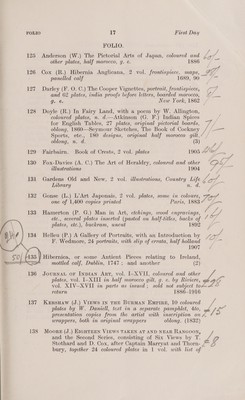 FOLIO 17 First Day
FOLIO.
125 Anderson (W.) The Pictorial Arts of Japan, coloured and
other plates, half morocco, g. e. 1886
126 Cox (R.) Hibernia Anglicana, 2 vol. frontispiece, maps,
panelled calf 1689, 90
127 Darley (F. O. C.) The Cooper Vignettes, portrait, frontispiece,
and 62 plates, india proofs before letters, boarded morocco,
g. e. New York, 1862
128 Doyle (R.) In Fairy Land, with a poem by W. Allington,
coloured plates, n. d.—Atkinson (G. F.) Indian Spices
for English Tables, 27 plates, original pictorial boards,
oblong, 1860—Seymour Sketches, The Book of Cockney
Sports, etc., 180 designs, original half morocco gilt,
oblong, n. d. (3)
129 Fairbairn. Book of Crests, 2 vol. plates 1905
130 Fox-Davies (A. C.) The Art of Heraldry, coloured and other
illustrations 1904
131 Gardens Old and New, 2 vol. illustrations, Country Life
Library n. d.
132 Gonse (L.) L'Art Japonais, 2 vol. plates, some in colours,
one of 1,400 copies printed Paris, 1883
133 Hamerton (P. G.) Man in Art, etchings, wood engravings,
etc., several plates inserted (pasted on half-titles, backs of
plates, etc.), buckram, uncut 1892
134 Helleu (P.) A Gallery of Portraits, with an Introduction by
F. Wedmore, 24 portraits, with slip of errata, half holland
1907
135 Hibernica, or some Antient Pieces relating to Ireland,
mottled calf, Dublin, 1747; and another (2)
136 Journal of Indian Art, vol. I-XVII, coloured and other
plates, vol. I-XIII in half morocco gilt, g. e. by Riviere,
vol. XIV-XVII in parts as issued: sold not subject to
return 1886-1916
137 Kershaw (J.) Views in the Burman Empire, 10 coloured
plates by W. Daniell, text in a separate pamphlet, 4to,
presentation copies from the artist with inscription on
wrappers, both in original wrappers oblong (1832)
138 Moore (J.) Eighteen Views taken at and near Rangoon,
and the Second Series, consisting of Six Views by T.
Stothard and D. Cox, after Captain Marryat and Thornbury,
bury, together 24 coloured plates in 1 vol. with list of